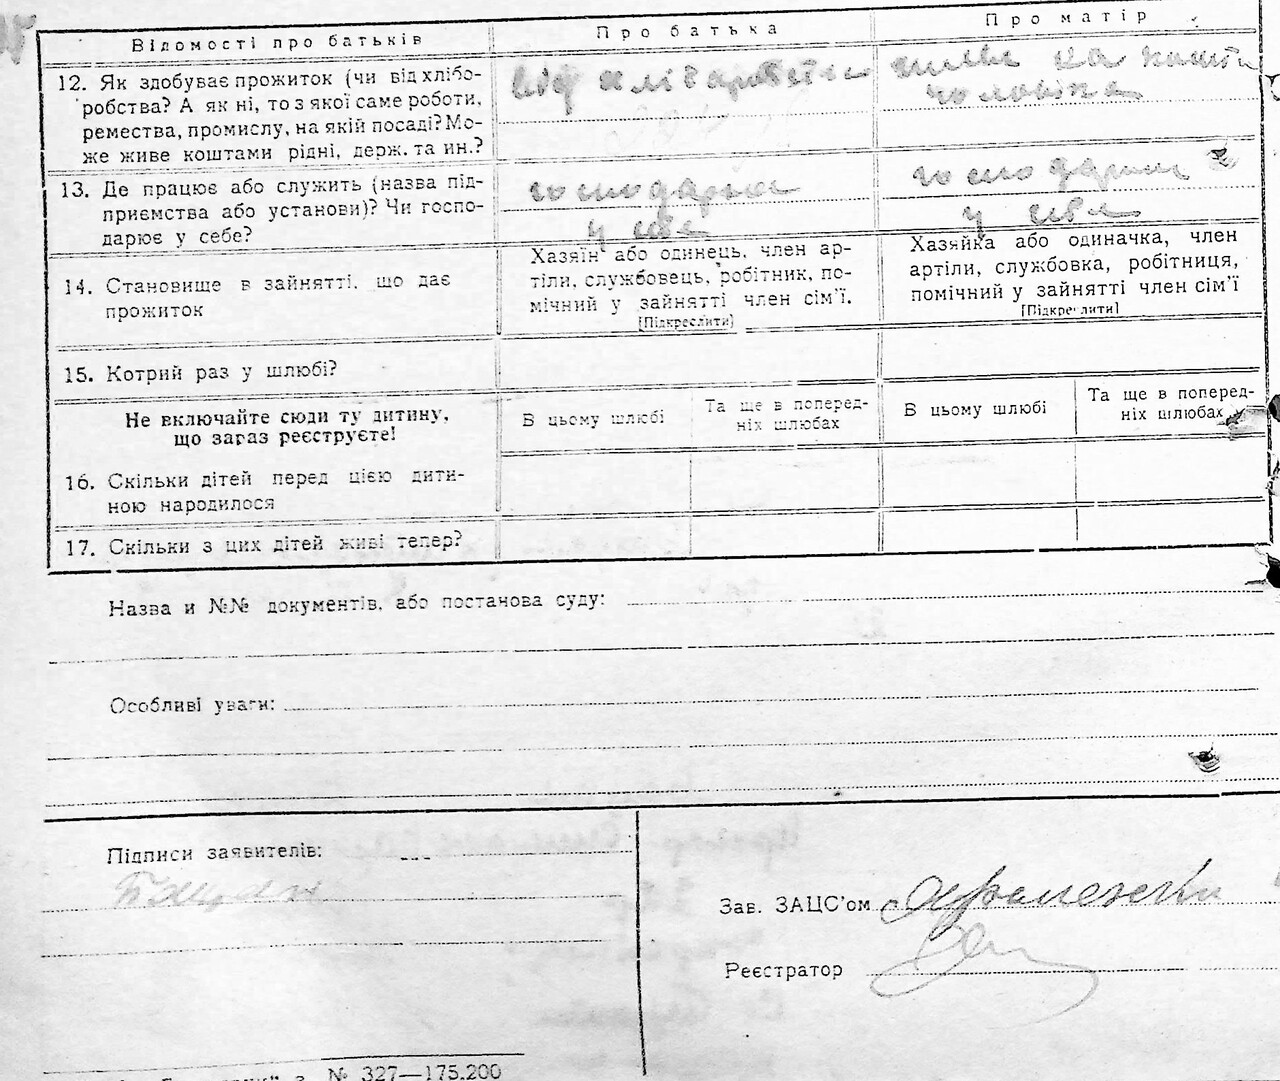 Відомості про батьків
Про батька
Про матір
12. Як здобуває прожиток (чи від хлібо-
робства? А як ні, то з якої саме роботи,
ремества, промислу, на якій посаді? Мо-
же живе коштами рідні, держ. та ин.?
від хліборобства
живе на кошти
чоловіка
13. Де працює або служить (назва під-
приємства або установи)? Чи госпо-
дарює у себе?
господарює
у себе
господарює
у себе
14. Становище в зайнятті, що дає
прожиток
Хазяїн або одинець, член ар-
тіли, службовець, робітник, по-
мічний у зайнятті член сім'ї.
[Підкреслити]
Хазяйка або одиначка, член
артіли, службовка, робітниця,
помічний у зайнятті член сім'ї
[Підкреслити]
15. Котрий раз у шлюбі?
Не включайте сюди ту дитину,
що зараз реєструєте!
В цьому шлюбі
Та ще в поперед-
ніх шлюбах
В цьому шлюбі
Та ще в поперед-
ніх шлюбах
16. Скільки дітей перед цією дити-
ною народилося
17. Скільки з цих дітей живі тепер?
Назва и №№ документів, або постанова суду:
Особливі уваги:
Підписи заявителів:
Зав. ЗАЦС'ом
Реєстратор
№ 327—175.200